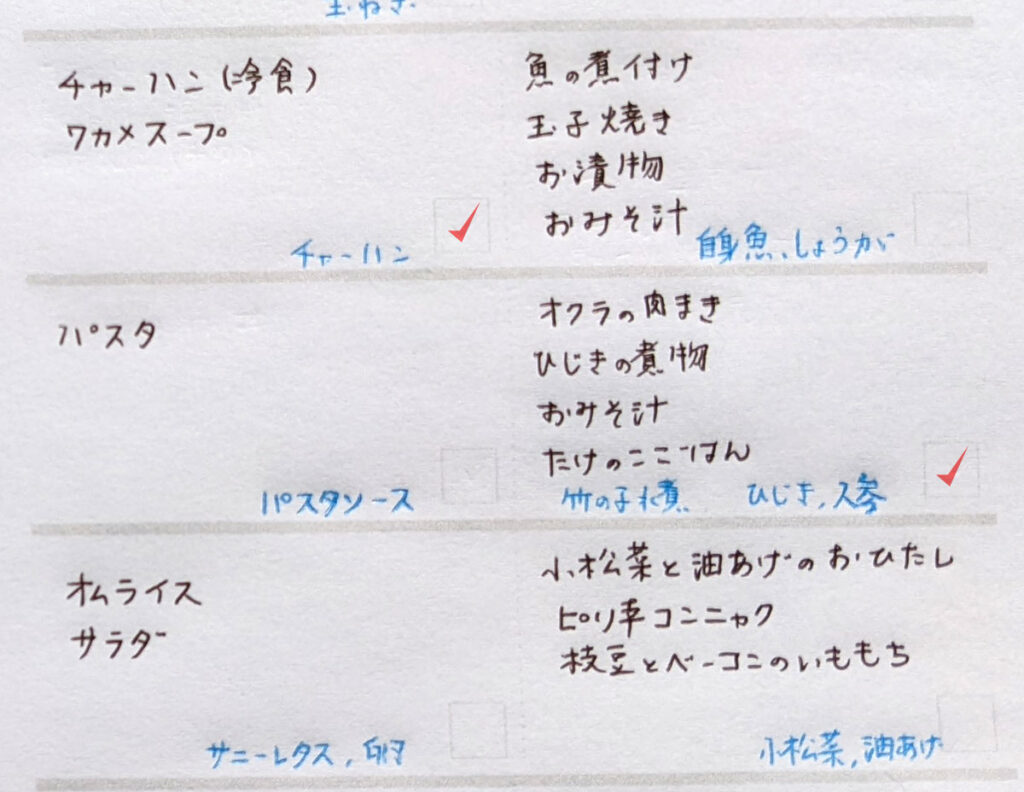 玉ねぎ
チャーハン(冷食)
ワカメスープ
チャーハン
魚の煮付け
玉子焼き
お漬物
おみそ汁
白身魚、しょうが
パスタ
パスタソース
オクラの肉まき
ひじきの煮物
おみそ汁
たけのこごはん
竹の子水煮 ひじき,人参
オムライス
サラダ
サニーレタス,卵
小松菜と油あげのおひたし
ピリ辛コンニャク
枝豆とベーコンのいももち
小松菜,油あげ